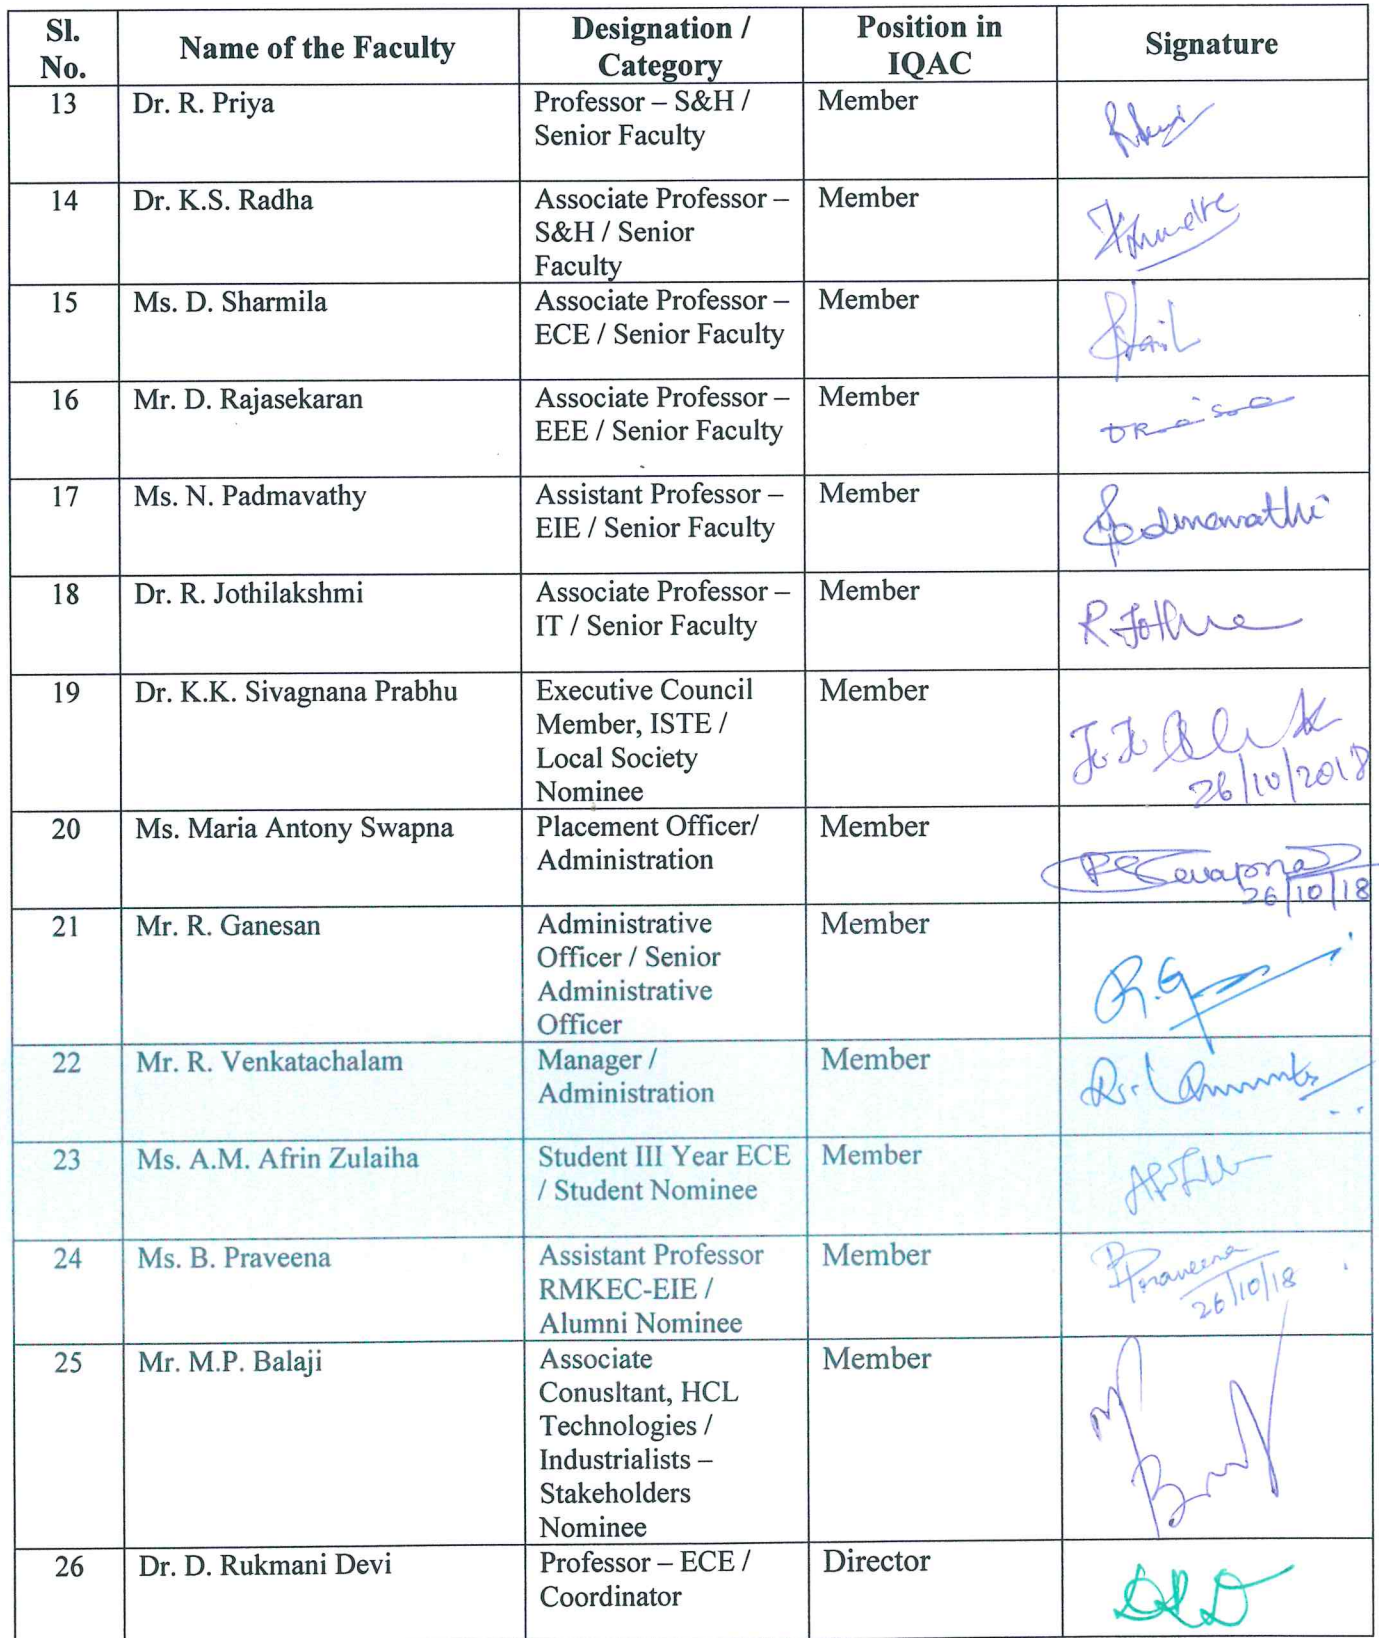 Sl.
No.
Name of the Faculty
Designation /
Category
Position in
IQAC
Signature
13
Dr. R. Priya
Professor – S&H /
Senior Faculty
Member
14
Dr. K.S. Radha
Associate Professor –
S&H / Senior
Faculty
Member
15
Ms. D. Sharmila
Associate Professor –
ECE / Senior Faculty
Member
16
Mr. D. Rajasekaran
Associate Professor –
EEE / Senior Faculty
Member
17
Ms. N. Padmavathy
Assistant Professor –
EIE / Senior Faculty
Member
18
Dr. R. Jothilakshmi
Associate Professor –
IT / Senior Faculty
Member
19
Dr. K.K. Sivagnana Prabhu
Executive Council
Member, ISTE /
Local Society
Nominee
Member
26/10/2018
20
Ms. Maria Antony Swapna
Placement Officer/
Administration
Member
26/10/18
21
Mr. R. Ganesan
Administrative
Officer / Senior
Administrative
Officer
Member
22
Mr. R. Venkatachalam
Manager /
Administration
Member
23
Ms. A.M. Afrin Zulaiha
Student III Year ECE
/ Student Nominee
Member
24
Ms. B. Praveena
Assistant Professor
RMKEC-EIE /
Alumni Nominee
Member
BPraveena
26/10/18
25
Mr. M.P. Balaji
Associate
Conusltant, HCL
Technologies /
Industrialists –
Stakeholders
Nominee
Member
26
Dr. D. Rukmani Devi
Professor – ECE /
Coordinator
Director